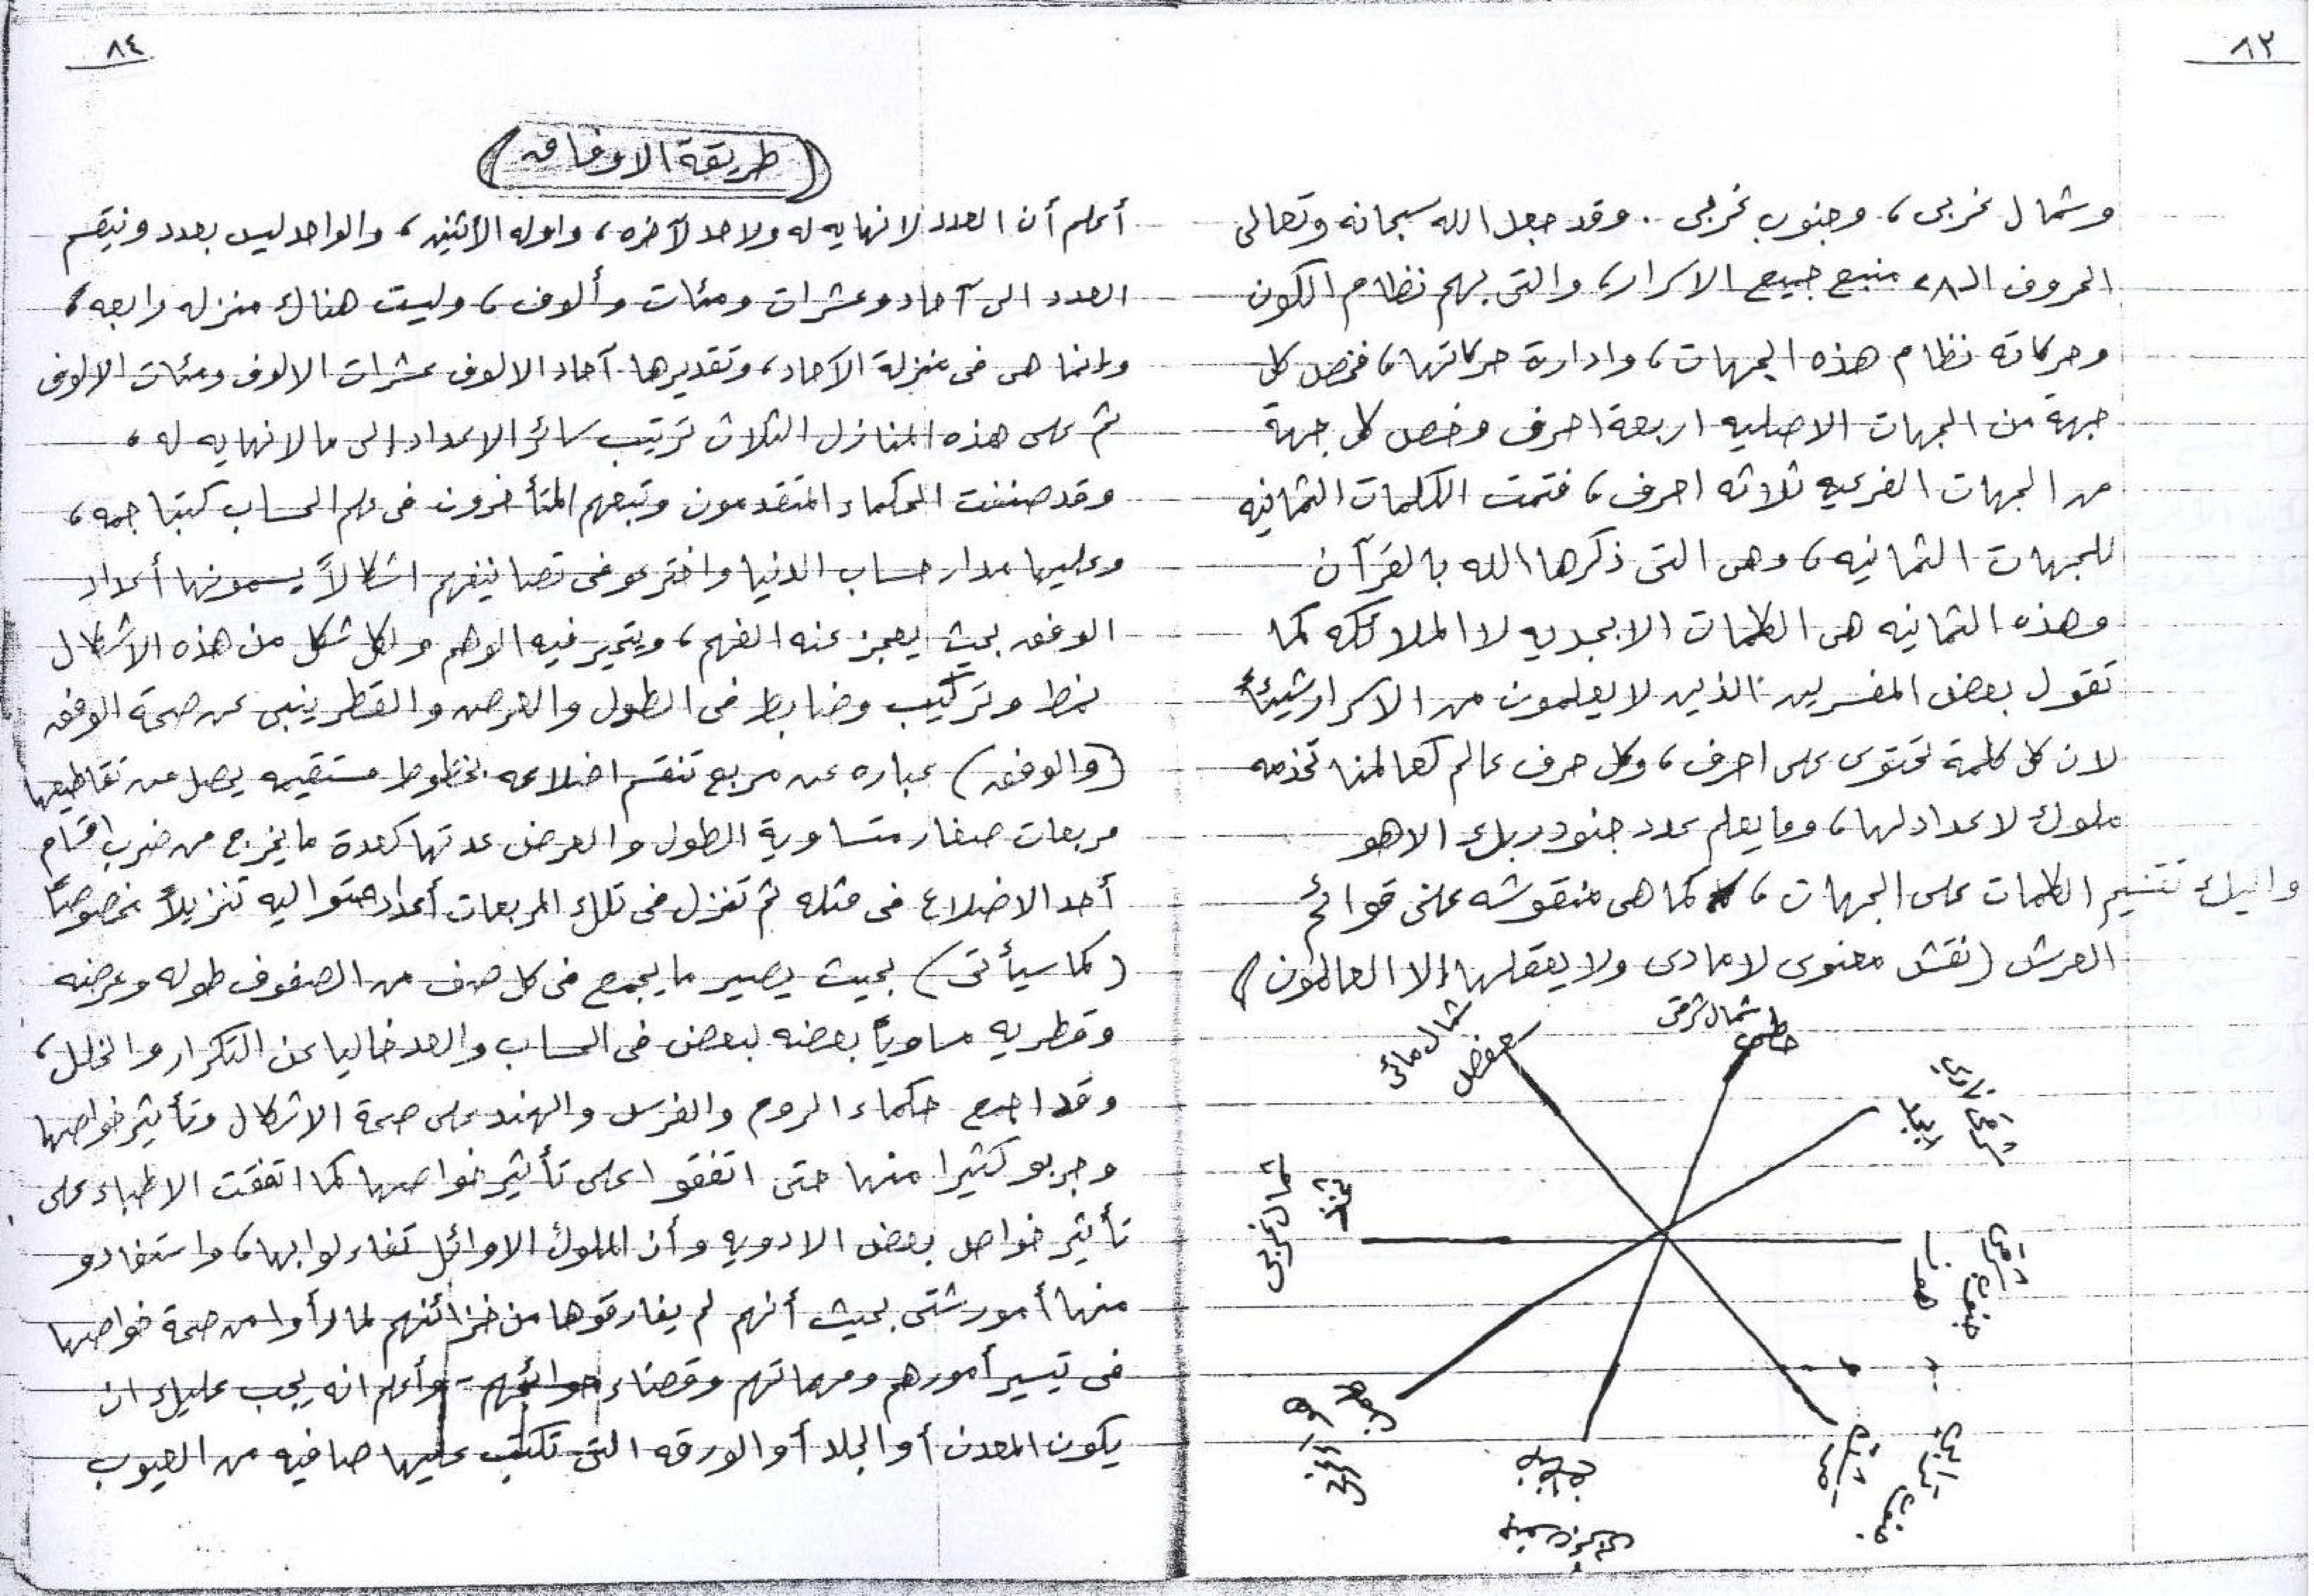 ٨٣
وشمال غربى، وجنوب غربى. وقد جعل الله سبحانه وتعالى
الحروف الـ٢٨ منبع جميع الاسرار، والتى بهم نظام الكون
وحركاته نظام هذه الجهات، وادارة حركاتها، فخصل كل
جهة من الجهات الاصليه اربعة احرف وخصل كل جهة
من الجهات الفرعيه ثلاثه احرف، فتمت الكلمات الثمانيه
للجهات الثمانيه، وهى التى ذكرها الله بالقرآن
وهذه الثمانيه هى الكلمات الابجديه لا الملائكه كما
تقول بعض المفسرين الذين لا يعلمون من الاسرار شيئاً
لان كل كلمة تحتوى على احرف، وكل حرف عالم كعالمنا تخدمه
ملوك لا عداد لها، وما يعلم عدد جنود ربك الا هو
واليك تقسيم الكلمات على الجهات، كما هى منقوشه على قوائم
العرش (نقش معنوى لا مادى ولا يعقلها إلا العالمون)
شمال شرقى
حطى
شمال مائى
سعفص
شرقى نارى
ابجد
شمال غربى
ثخذ
جنوب شرقى
هوز
جنوب ترابى
قرشت
٨٤
(طريقة الاوفاق)
أعلم أن العدد لا نهايه له ولا حد لآخره، واوله الأثنين، والواحد ليس بعدد ونيقسم
العدد الى آحاد وعشرات ومئات وألاف، وليست هناك منزله رابعه،
وإنما هى فى منزلة الآحاد، وتقديرها آحاد الالوف عشرات الالوف ومئات الالوف
ثم على هذه المنازل الثلاث ترتيب سائر الاعداد إلى ما لا نهايه له،
وقد صننت الحكماء المتقدمون وتبعهم المتأخرون فى علم الحساب كتبا جمه،
وعليها مدار حساب الدنيا واخترعو فى تصانيفهم اشكالاً يسمونها أعداد
الوفق بحيث يعجز عنه الفهم، ويتحير فيه الوهم ولكل شكل من هذه الاشكال
نمط وتركيب وضابط فى الطول والعرض والقطر ينبى عن صحة الوفق
(والوفق) عباره عن مربع تنقسم اضلاعه بخطوط مستقيمه يحصل من تقاطيعها
مربعات صغار متساوية الطول والعرض عدتها كعدة ما يخرج من ضرب اقسام
أحد الاضلاع فى مثله ثم تنزل فى تلك المربعات أعداد متواليه تنزيلاً مخصوصاً
(كما سيأتى) بحيث يصير ما يجمع فى كل صف من الصفوف طوله وعرضه
وقطريه مساوياً بعضه لبعض فى الحساب والعد خاليا عن التكرار والخلل،
وقد اجمع حكماء الروم والفرس والهند على صحة الاشكال وتأثير خواصها
وجربو كثيرا منها حتى اتفقوا على تأثير خواصها كما اتفقت الاطباء على
تأثير خواص بعض الادويه وأن الملوك الاوائل تفاءلوا بها، واستفادو
منها أمور شتى بحيث أنهم لم يفارقوها من خزائنهم لما رأوا من صحة خواصها
فى تيسير أمورهم ومهماتهم وقضاء حوائجهم - وأعلم انه يجب عليك ان
يكون المعدن أو الجلد أو الورقه التى تكتب عليها صافيه من العيوب